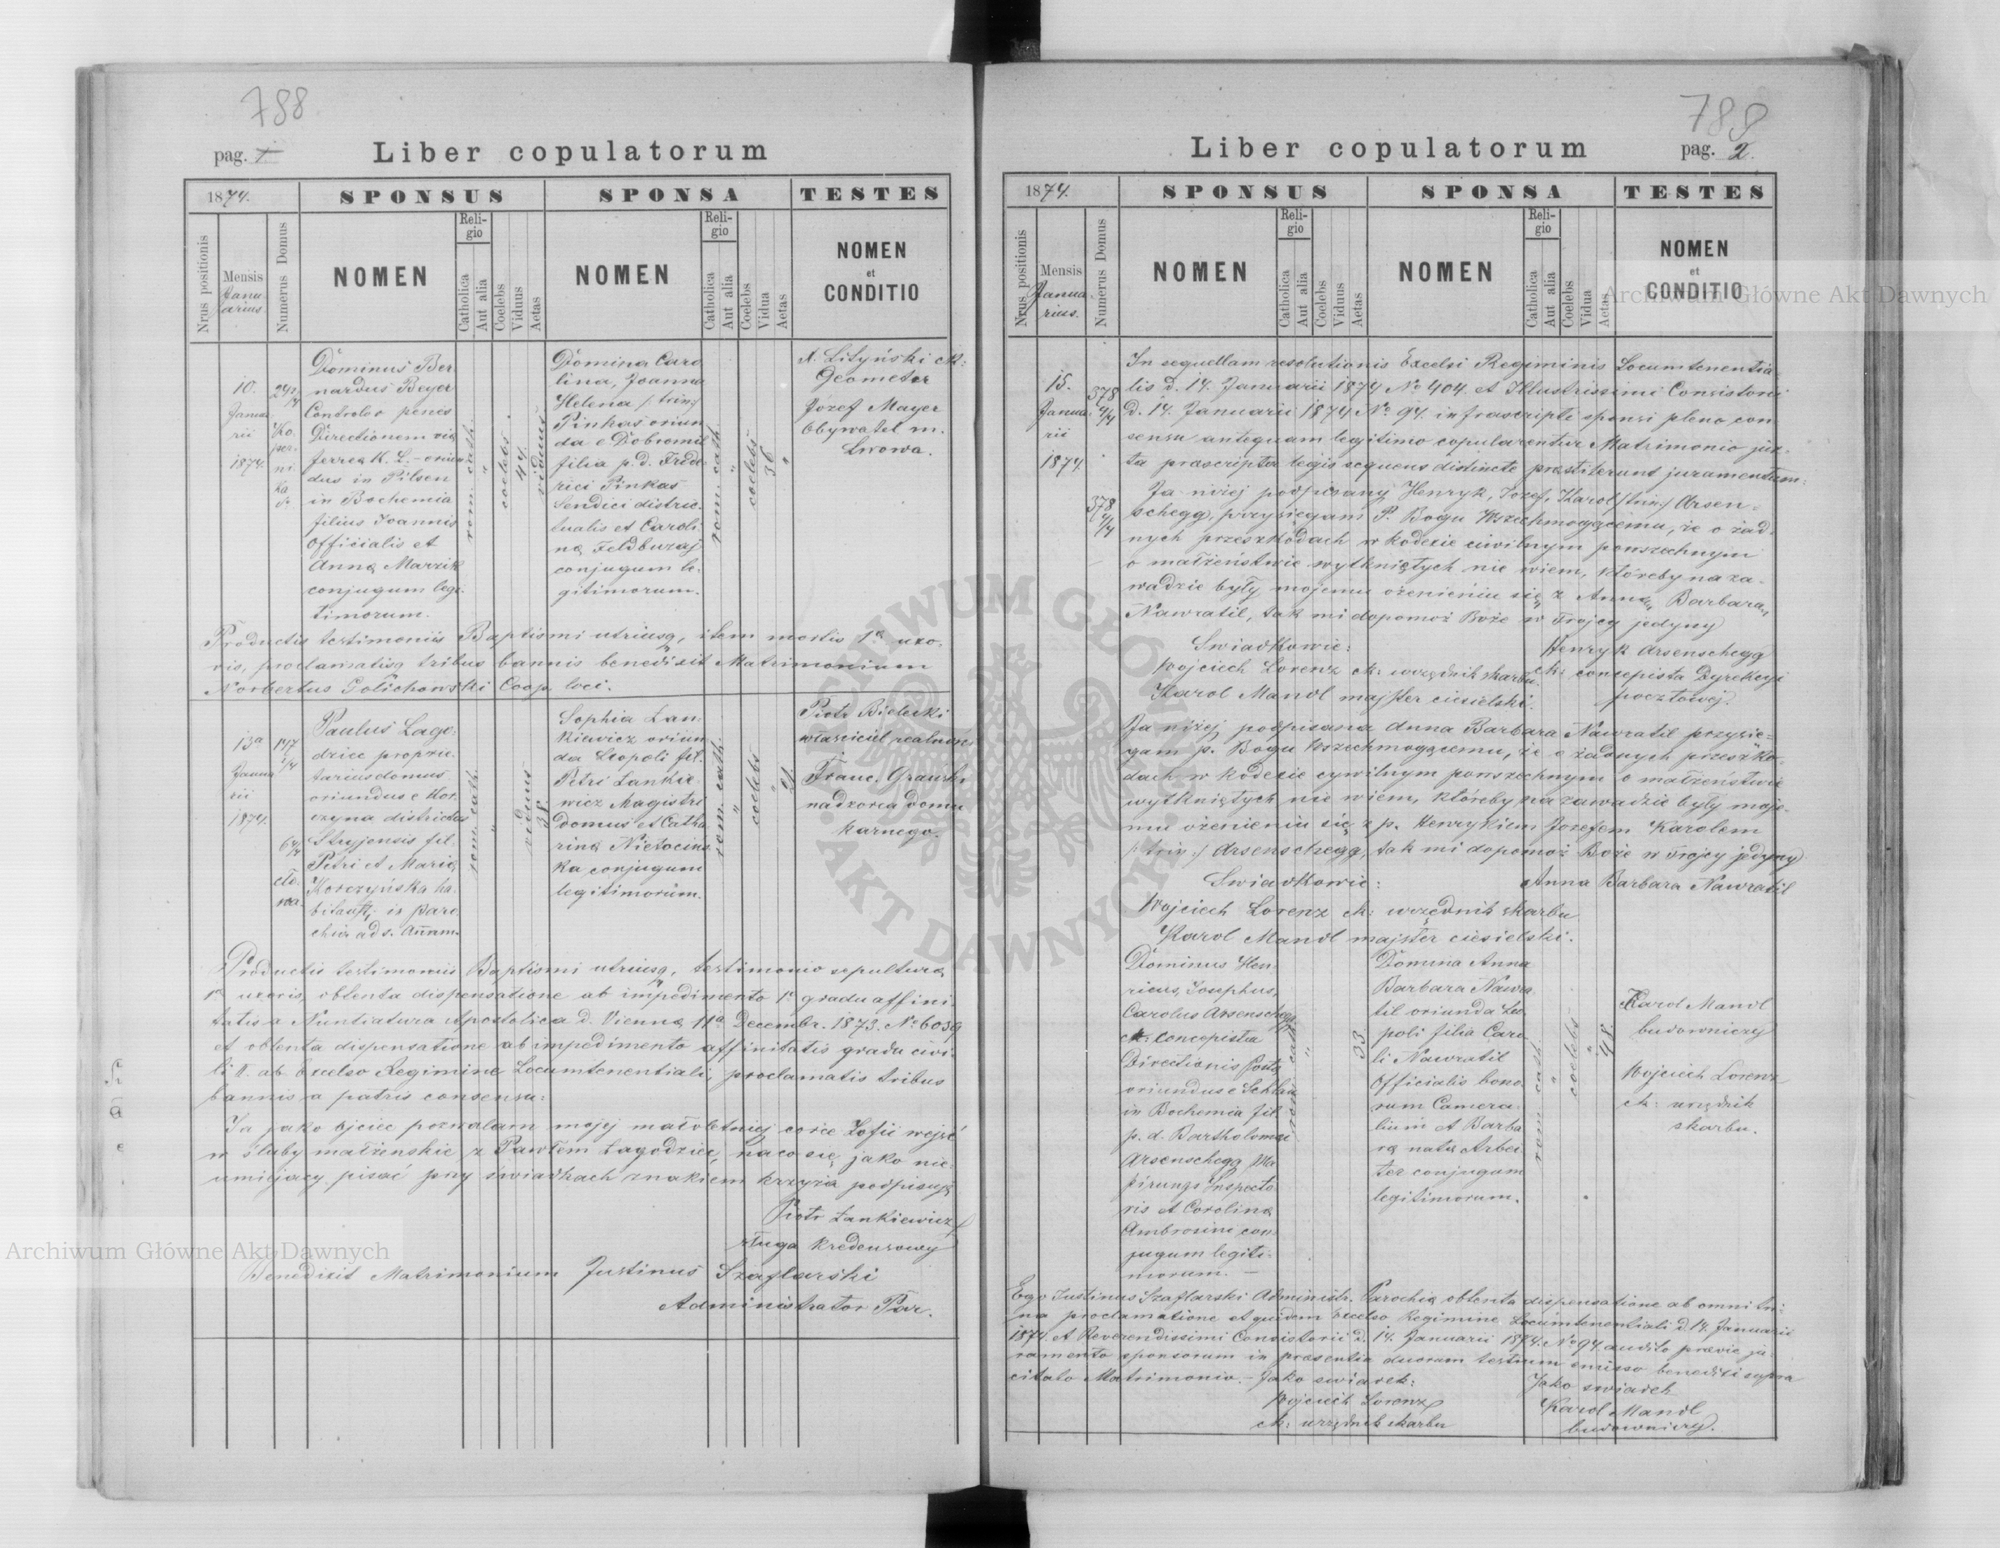 788
pag. 1
Liber copulatorum
1874.
SPONSUS
SPONSA
TESTES
Nrus positionis
Mensis
Janu
arius.
Numerus Domus
NOMEN
Reli-
gio
Catholica
Aut alia
Coelebs
Viduus
Aetas
NOMEN
Reli-
gio
Catholica
Aut alia
Coelebs
Vidua
Aetas
NOMEN
et
CONDITIO
10.
Janua
rii
1874.
Dominus Ber
nardus Beyer
Controlor penes
Directionem viæ
ferreæ K. L. - oriun
dus in Pilsen
in Bochemia
filius Joannis
Officialis et
Anna Marzik
conjugum legi
timorum.
rom. cath.
coelebs
44
viduus
Domina Caro
lina, Joanna
Helena /: trin:/
Pinkas oriun
da e Dobromil
filia p. d. Fride
rici Pinkas
Sendici distric
tualis et Caroli
na Feldburaj
conjugum le
gitimorum.
rom. cath.
coelebs
36
A. Lityński ck:
Geometer
Józef Mayer
Obywatel m.
Lwowa.
Productis testimoniis Baptismi utriusq, item mortis 1æ uxo
ris, proclamatisq tribus bannis benedixit Matrimonium
Norbertus Golichowski Coop. loci.
13a
Janua
rii
1874.
Paulus Lago
dzice proprie
tarius domus
oriundus e Kor
czyna districtus
Stryjensis fil.
Petri et Maria
Korczyńska ha
bitans in Paro
chia ad S. Annam.
rom. cath.
viduus
38
Sophia Łan
kiewicz oriun
da Leopoli fil.
Petri Łankie
wicz Magistri
domus et Catha
rina Nietocins
ka conjugum
legitimorum.
rom. cath.
coelebs
21.
Piotr Bielecki
właściciel realności
Franc. Grauski
nadzorca domu
karnego.
Productis testimoniis Baptismi utriusq, testimonio sepulturæ
1æ uxoris, obtenta dispensatione ab impedimento 1i gradu affini
tatis a Nuntiatura Apostolica d. Vienna 11a Decembr. 1873. No 6039
et obtenta dispensatione ab impedimento affinitatis gradu civi
li II. ab Excelso Regimine Locumtenentiali, proclamatis tribus
bannis a patris consensu:
Ja jako ojciec pozwalam mojej małoletniej corce Zofii wejść
w śluby małżenskie z Pawłem Łagodzice, na co się jako nie
umiejący pisać przy świadkach znakiem krzyża podpisuję
Piotr Łankiewicz
sługa kredensowy
Benedixit Matrimonium Justinus Szaflarski
Administrator Par.
789
pag. 2.
Liber copulatorum
1874.
SPONSUS
SPONSA
TESTES
Nrus positionis
Mensis
Janua
rius.
Numerus Domus
NOMEN
Reli-
gio
Catholica
Aut alia
Coelebs
Viduus
Aetas
NOMEN
Reli-
gio
Catholica
Aut alia
Coelebs
Vidua
Aetas
NOMEN
et
CONDITIO
15.
Janua
rii
1874
378
4/4
378
4/4
In sequellam resolutionis Excelsi Regiminis Locumtenentia
lis d. 14. Januarii 1874 No 404. et Illustrissimi Consistorii
d. 14. Januarii 1874 No 94. infrascripti sponsi pleno con
sensu antequam legitimo copularentur Matrimonio jux
ta præscripta legis sequens distincte præstiterunt juramentum:
Ja niżej podpisany Henryk, Jozef, Karol /:trin:/ Arsen=
schegg, przysięgam P. Bogu Wszechmogącemu, że o żad
nych przeszkodach w kodexie ciwilnym powszechnym
o małżeństwie wytkniętych nie wiem, któreby na za-
wadzie były mojemu ożenieniu się z Anną Barbarą
Nawratil, tak mi dopomoż Boże w Trojcy jedyny
Swiadkowie:
Henryk Arsenschegg
Wojciech Lorenz ck: urzędnik skarbu
ck: concepista Dyrekcyi
Karol Mandl majster ciesielski.
pocztowej.
Ja niżej podpisana Anna Barbara Nawratil przysię=
gam P. Bogu Wszechmogącemu, że o żadnych przeszko-
dach w kodexie cywilnym powszechnym o małżeństwie
wytkniętych nie wiem, któreby na zawadzie były moje-
mu ożenieniu się z p. Henrykiem Jozefem Karolem
/:trin:/ Arsenschegg, tak mi dopomoż Boże w Trojcy jedyny
Swiadkowie:
Anna Barbara Nawratil
Wojciech Lorenz ck: urzędnik skarbu
Karol Mandl majster ciesielski.
Dominus Hen
ricus, Josephus,
Carolus Arsenschegg
ck: concepista
Directionis Posta
oriundus e Schlan
in Bochemia fil.
p. d. Bartholomæi
Arsenschegg Ma
firungs Inspecto
ris et Carolina
Ambrosine con
jugum legiti
morum.
rom. cath.
33
Domina Anna
Barbara Nawra
til oriunda Leo
poli filia Caro
li Nawratil
Officialis bono
rum Camera
lium et Barba
ra nata Arbei
ter conjugum
legitimorum.
rom. cath.
coelebs
48.
Karol Mandl
budowniczy
Wojciech Lorenz
ck: urzędnik
skarbu.
Ego Justinus Szaflarski Administr. Parochiæ obtenta dispensatione ab omni tri
na proclamatione et quidem Excelso Regimine Locumtenentiali d. 14. Januarii
1874. et Reverendissimi Consistorii d. 14. Januarii 1874. No 94 audito prævie ju
ramento sponsorum in præsentia duorum testium emisso benedixi supra
citato Matrimonio. - Jako swiadek:
Jako swiadek
Wojciech Lorenz
Karol Mandl
ck: urzędnik skarbu
budowniczy.
Archiwum Główne Akt Dawnych
Archiwum Główne Akt Dawnych
ARCHIWUM GŁÓWNE AKT DAWNYCH